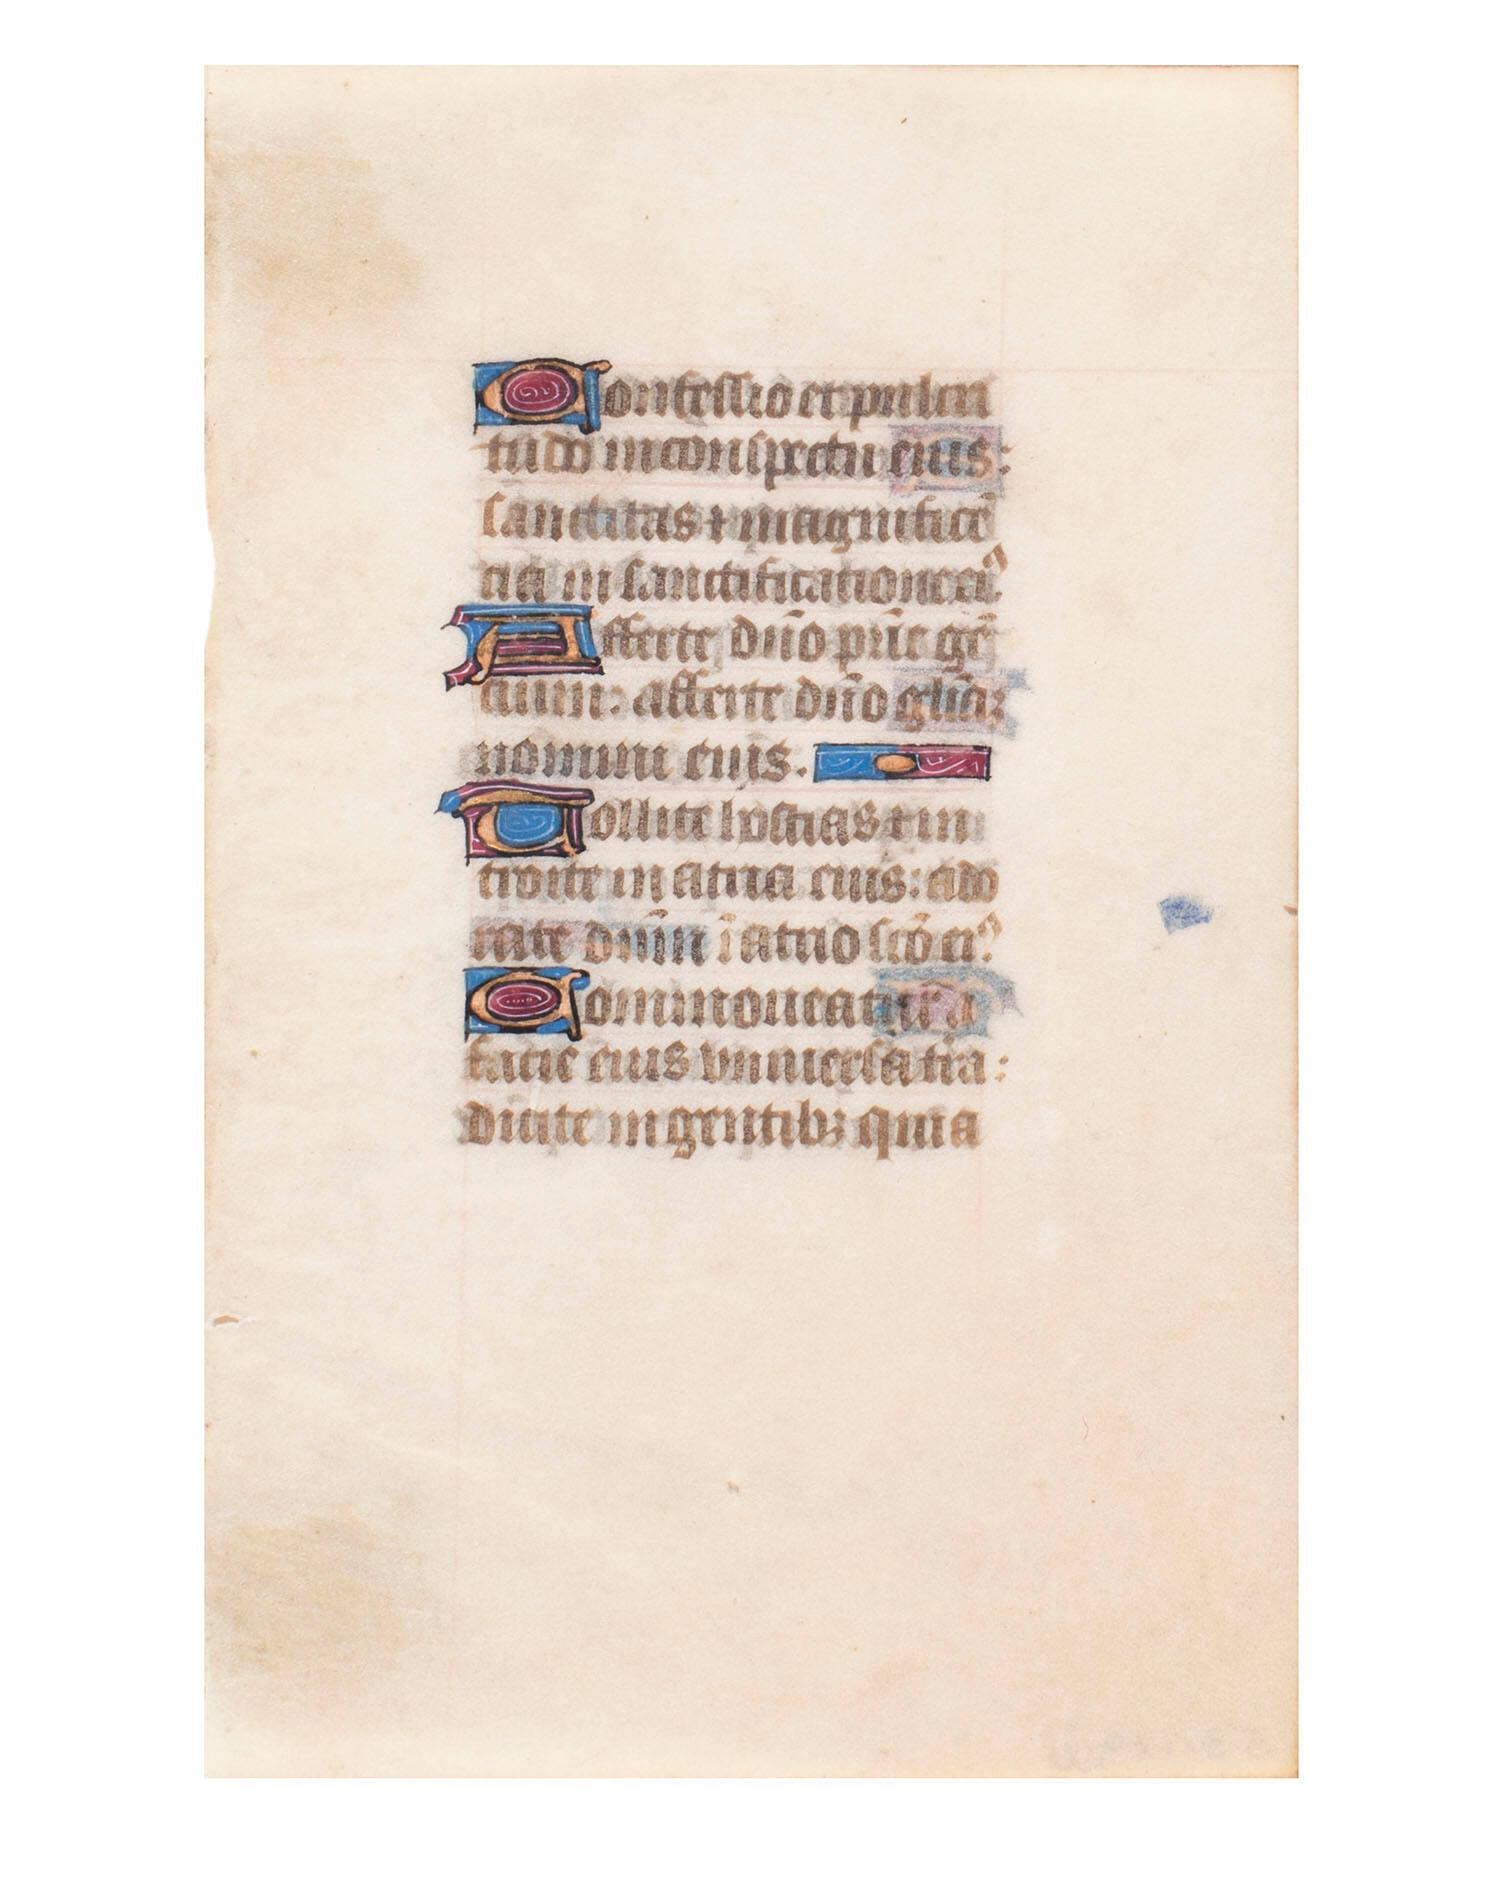 Confessio et pulcri
tudo in conspectu eius:
sanctitas ⁊ magnificē
cia in sanctificatione ei⁹
Afferte dn̄o pr̄ie gē
cium: afferte dn̄o gl̄iaꝫ
nomini eius.
Tollite hostias ⁊ in
troite in atria eius: ado
rate dn̄m ī atrio sc̄o ei⁹
Commoueatur a
facie eius vniuersa tr̄a:
dicite in gentibꝫ quia